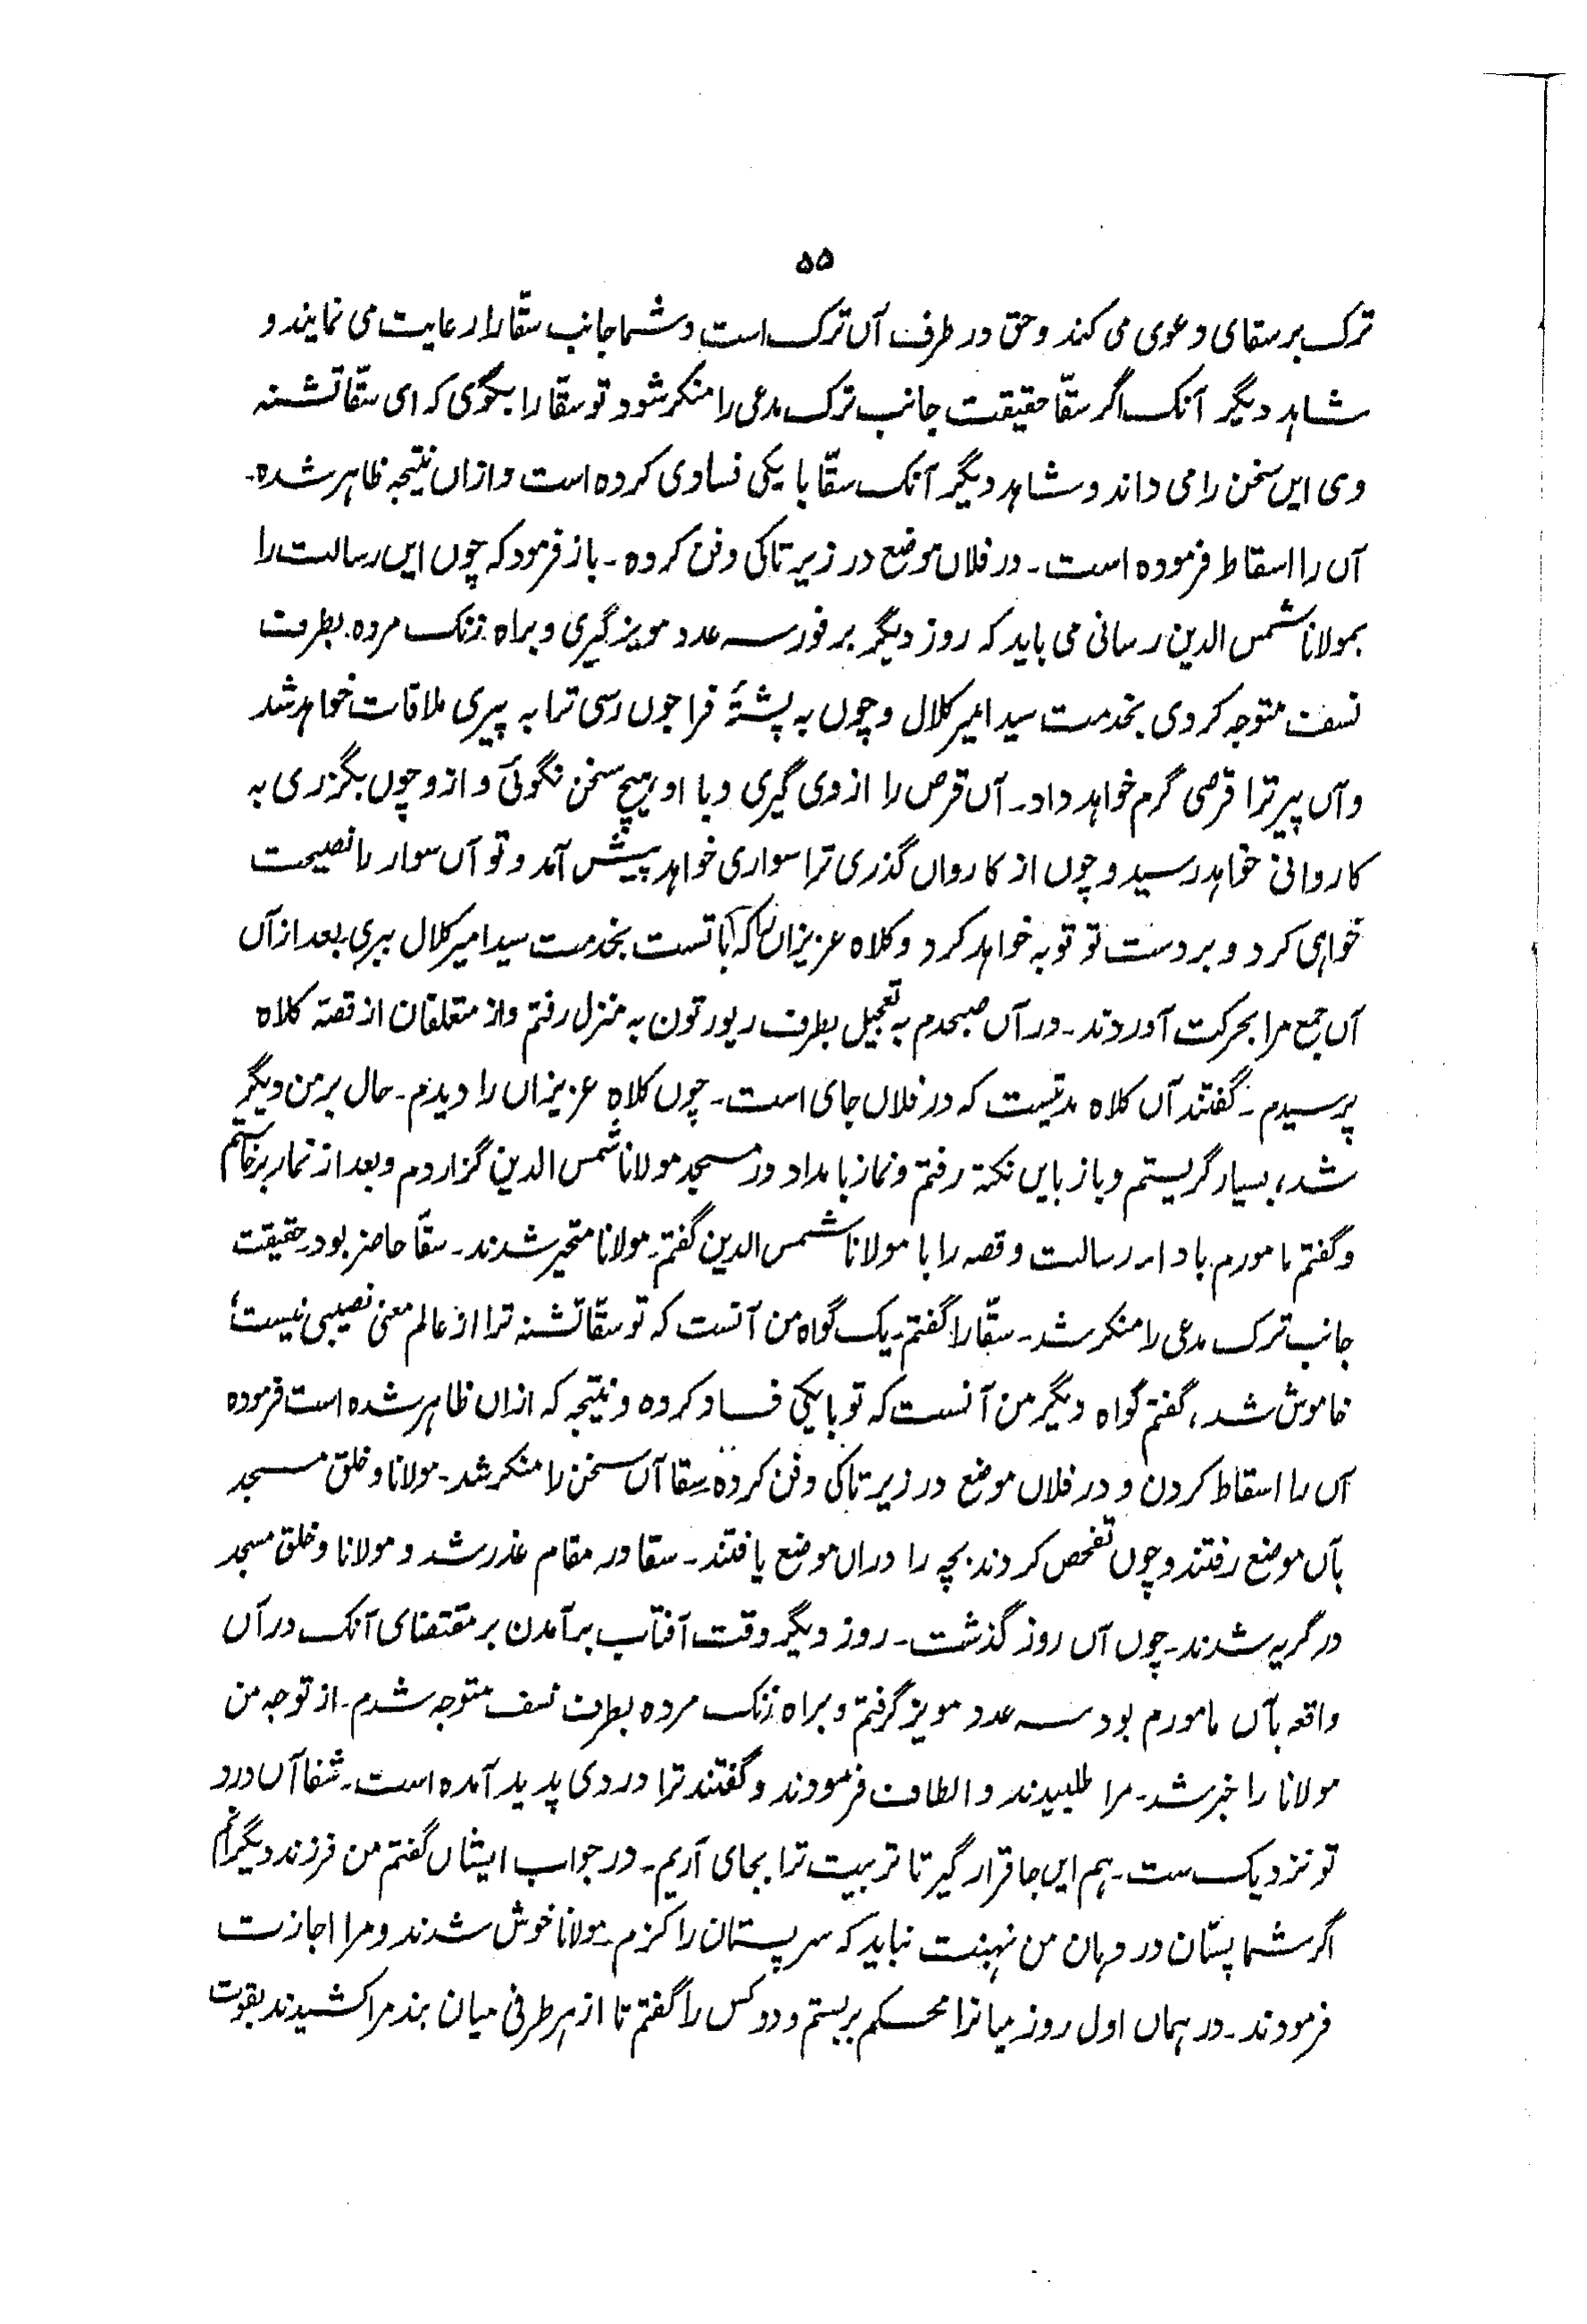 ۵۵
ترک بر سقای دعوی می کند و حق در طرف آں ترک است و شما جانب سقّا را رعایت می نمایند و
شاهد دیگر آنک اگر سقّا حقیقت جانب ترک مدعی را منکر شود تو سقّا را بگوی که ای سقّا تشنه
وی ایں سخن را می داند و شاهد دیگر آنک سقّا با یکی فسادی کرده است و ازاں نتیجه ظاهر شده۔
آں را اسقاط فرموده است۔ در فلاں موضع در زیر تاکی دفن کرده۔ باز فرمود که چوں ایں رسالت را
بمولانا شمس الدین رسانی می باید که روز دیگر بر فور سه عدد مویز گیری و براه زنک مرده۔ بطرف
نسف متوجه کردی بخدمت سید امیر کلال و چوں به پشتۂ فراجوں رسی ترا به پیری ملاقات خواهد شد
و آں پیر ترا قرصی گرم خواهد داد۔ آں قرص را از وی گیری و با او هیچ سخن نگوئی و ازو چوں بگزری به
کاروانی خواهد رسید و چوں از کارواں گذری ترا سواری خواهد پیش آمد و تو آں سوار را نصیحت
خواهی کرد و بر دست تو توبه خواهد کرد و کلاه عزیزاں را که با تست بخدمت سید امیر کلال ببری۔ بعد ازآں
آں جمع مرا بحرکت آوردند۔ در آں صبحدم به تعجیل بطرف ریورتون به منزل رفتم و از متعلقان از قصۂ کلاه
پرسیدم۔ گفتند آں کلاه مدتیست که در فلاں جای است۔ چوں کلاهِ عزیزاں را دیدم۔ حال بر من دیگر
شد، بسیار گریستم و باز بایں نکتۃ رفتم و نماز بامداد در مسجد مولانا شمس الدین گزاردم و بعد از نماز برخاستم
و گفتم مامورم باداء رسالت و قصه را با مولانا شمس الدین گفتم۔ مولانا متحیر شدند۔ سقّا حاضر بود۔ حقیقت
جانب ترک مدعی را منکر شد۔ سقّا را گفتم۔ یک گواه من آنست که تو سقّا تشنه ترا از عالم معنی نصیبی نیست؛
خاموش شد، گفتم گواه دیگر من آنست که تو با یکی فساد کرده و نتیجه که ازاں ظاهر شده است فرموده
آں را اسقاط کردن و در فلاں موضع در زیر تاکی دفن کرده۔ سقا آں سخن را منکر شد۔ مولانا و خلق مسجد
بآں موضع رفتند و چوں تفحص کردند بچه را دراں موضع یافتند۔ سقا در مقام عذر شد و مولانا و خلق مسجد
در گریه شدند۔ چوں آں روز گذشت۔ روز دیگر وقت آفتاب برآمدن بر مقتضای آنک در آں
واقعه بآں مامورم بود سه عدد مویز گرفتم و براه زنک مرده بطرف نسف متوجه شدم۔ از توجه من
مولانا را خبر شد۔ مرا طلبیدند و الطاف فرمودند و گفتند ترا دردی پدید آمده است۔ شفا آں درد
تو نزدیک ست۔ هم ایں جا قرار گیر تا تربیت ترا بجای آریم۔ در جواب ایشاں گفتم من فرزند دیگرانم
اگر شما پستان در دهان من نهیت نباید که سر پستان را کزم۔ مولانا خوش شدند و مرا اجازت
فرمودند۔ در هماں اول روز میانرا محکم بربستم و دو کس را گفتم تا از هر طرفی میان بند مرا کشیدند بقوت